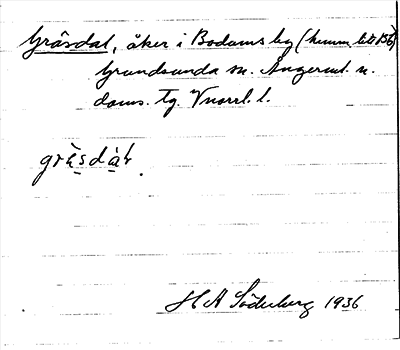 Gräsdal, åker i Bodums by (hemm. litt B5b)
Grundsunda sn. Ångerml. n.
doms. tg. Vnorrl. l.
gräsdàl.
H A Söderberg 1936